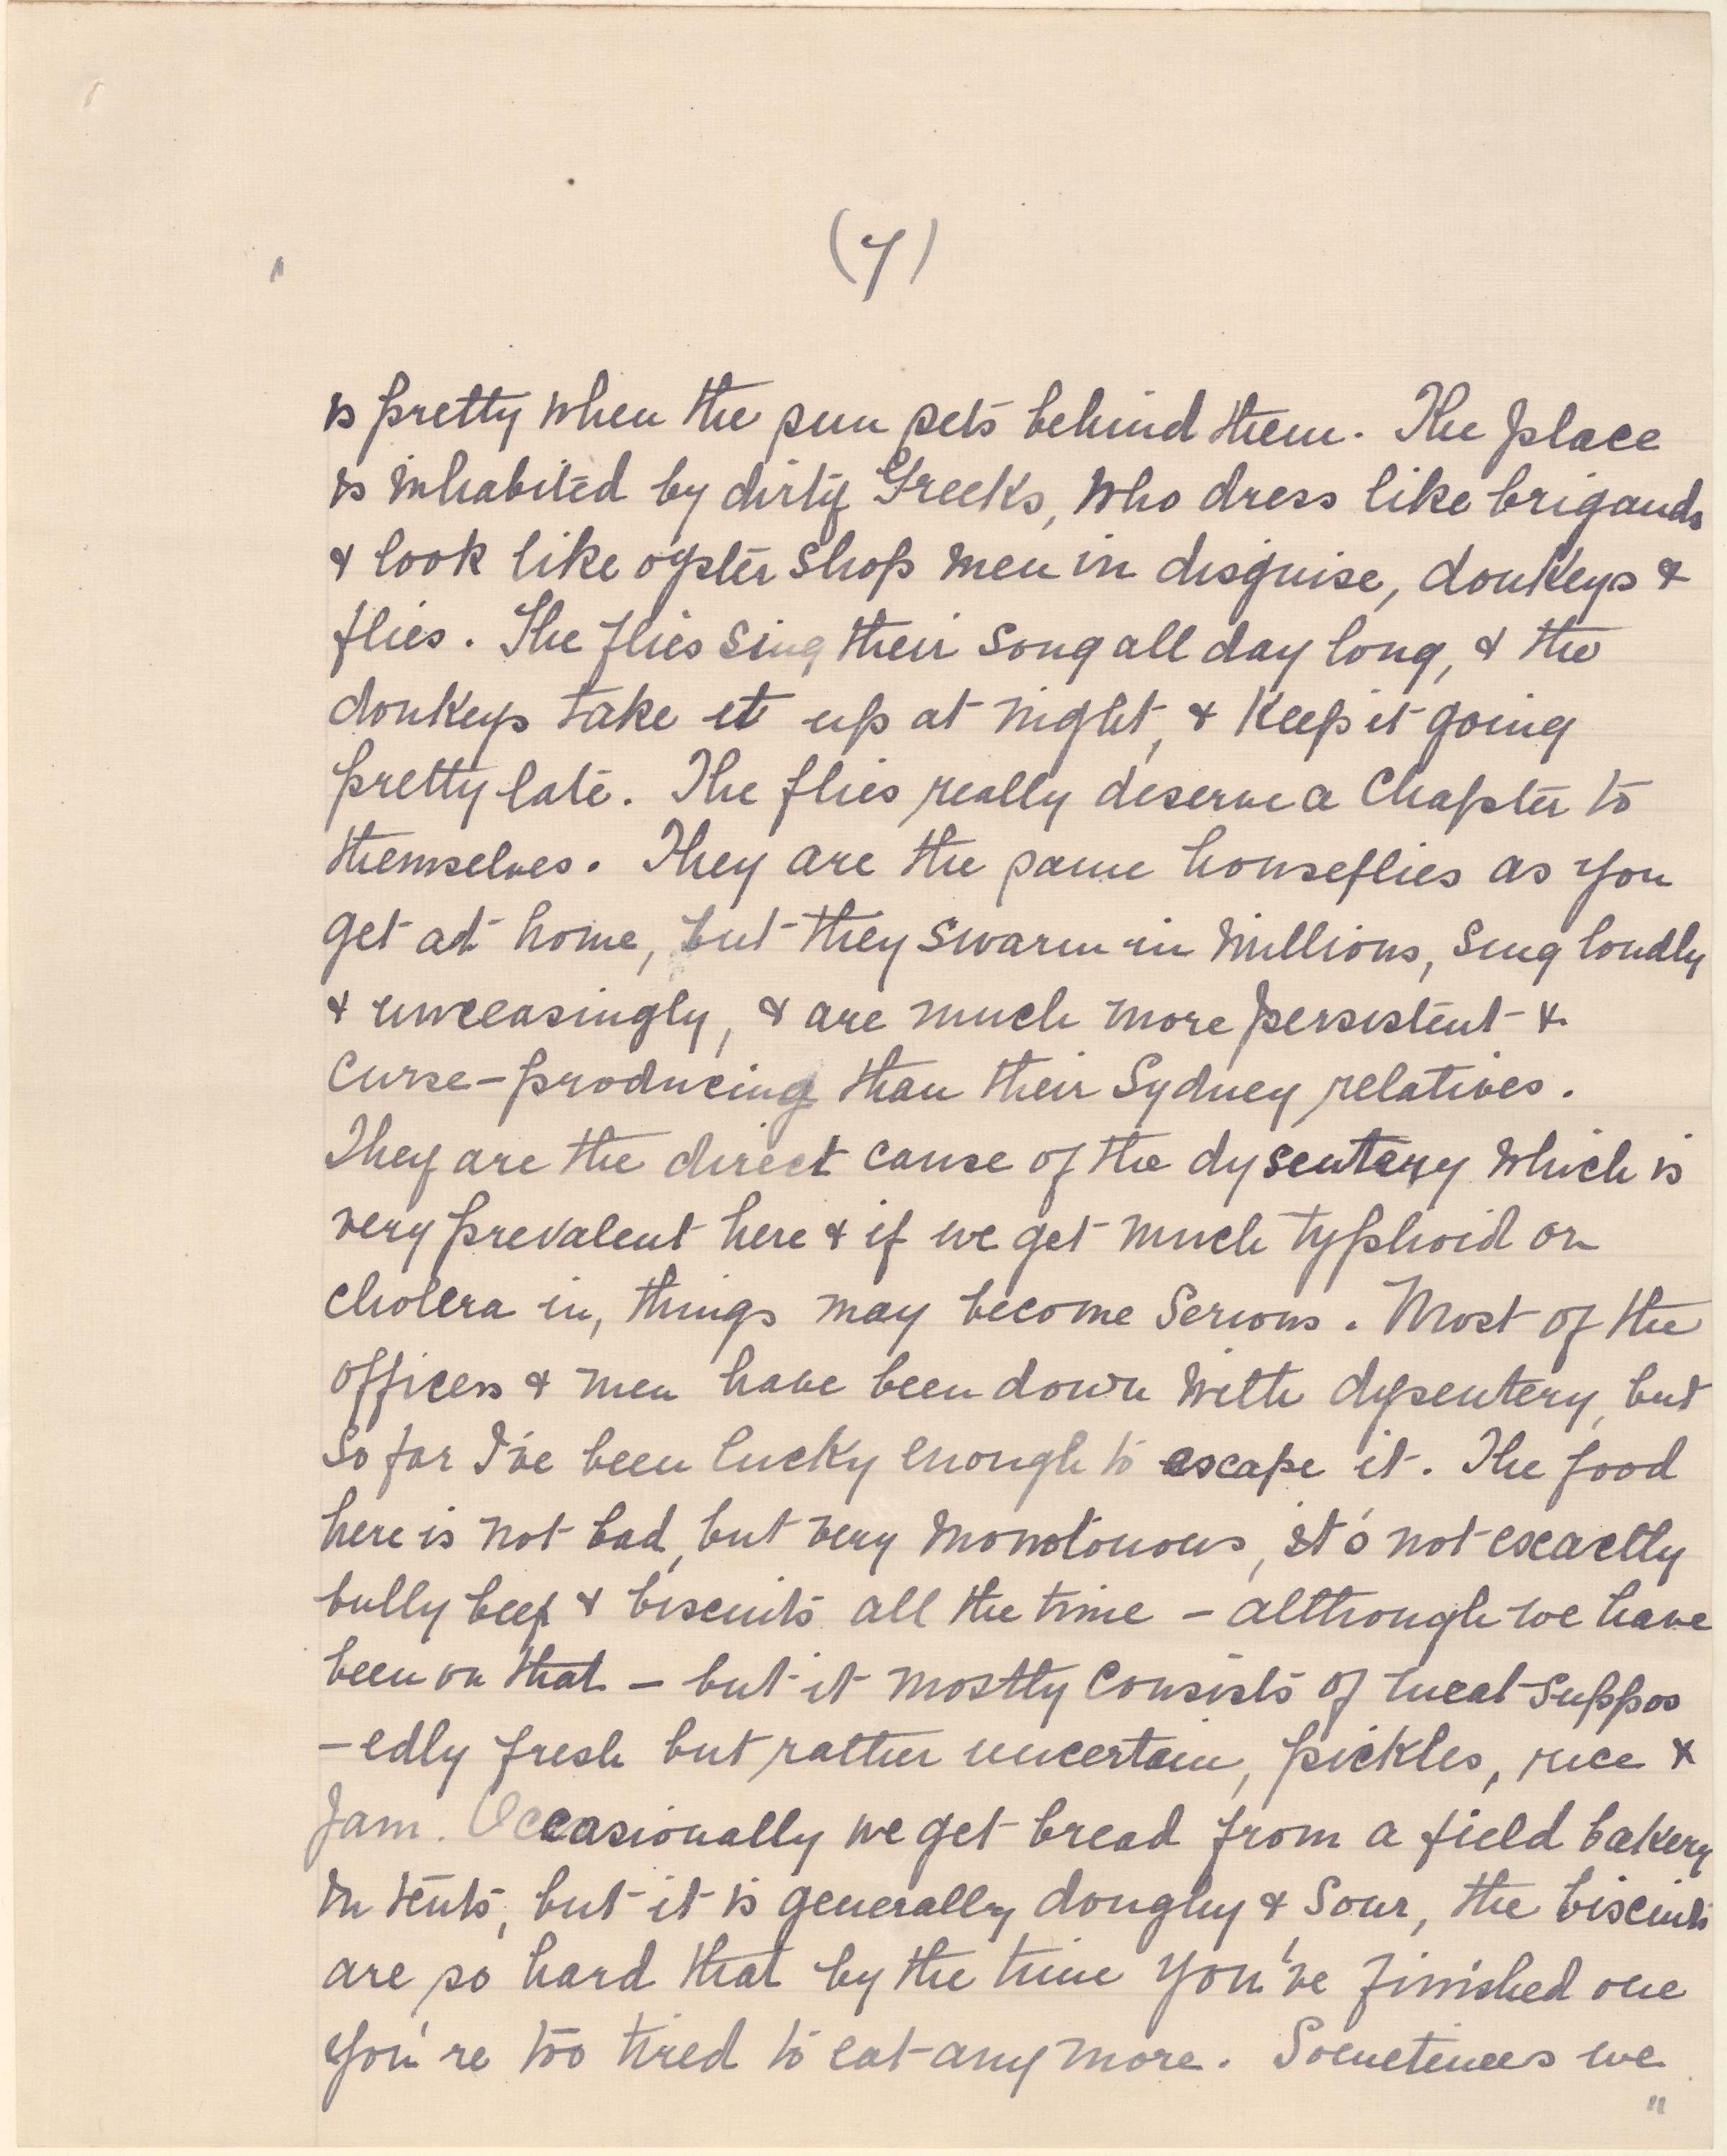 (7)
is pretty when the sun sets behind them. The place
is inhabited by dirty Greeks, who dress like brigands
& look like oyster shop men in disguise, donkeys &
flies. The flies sing their song all day long, & the
donkeys take it up at night, & keep it going
pretty late. The flies really deserve a chapter to
themselves. They are the same houseflies as you
get at home, but they swarm in millions, sing loudly
& unceasingly, & are much more persistent &
curse-producing than their Sydney relatives.
They are the direct cause of the dysentery which is
very prevalent here & if we get much typhoid or
cholera in, things may become serious. Most of the
officers & men have been down with dysentery, but
so far I've been lucky enough to escape it. The food
here is not bad, but very monotonous, it's not exactly
bully beef & biscuits all the time - although we have
been on that - but it mostly consists of meat suppos
-edly fresh but rather uncertain, pickles, rice &
jam. Occasionally we get bread from a field bakery
in tents, but it is generally doughy & sour, the biscuits
are so hard that by the time you've finished one
you're too tired to eat any more. Sometimes we
"